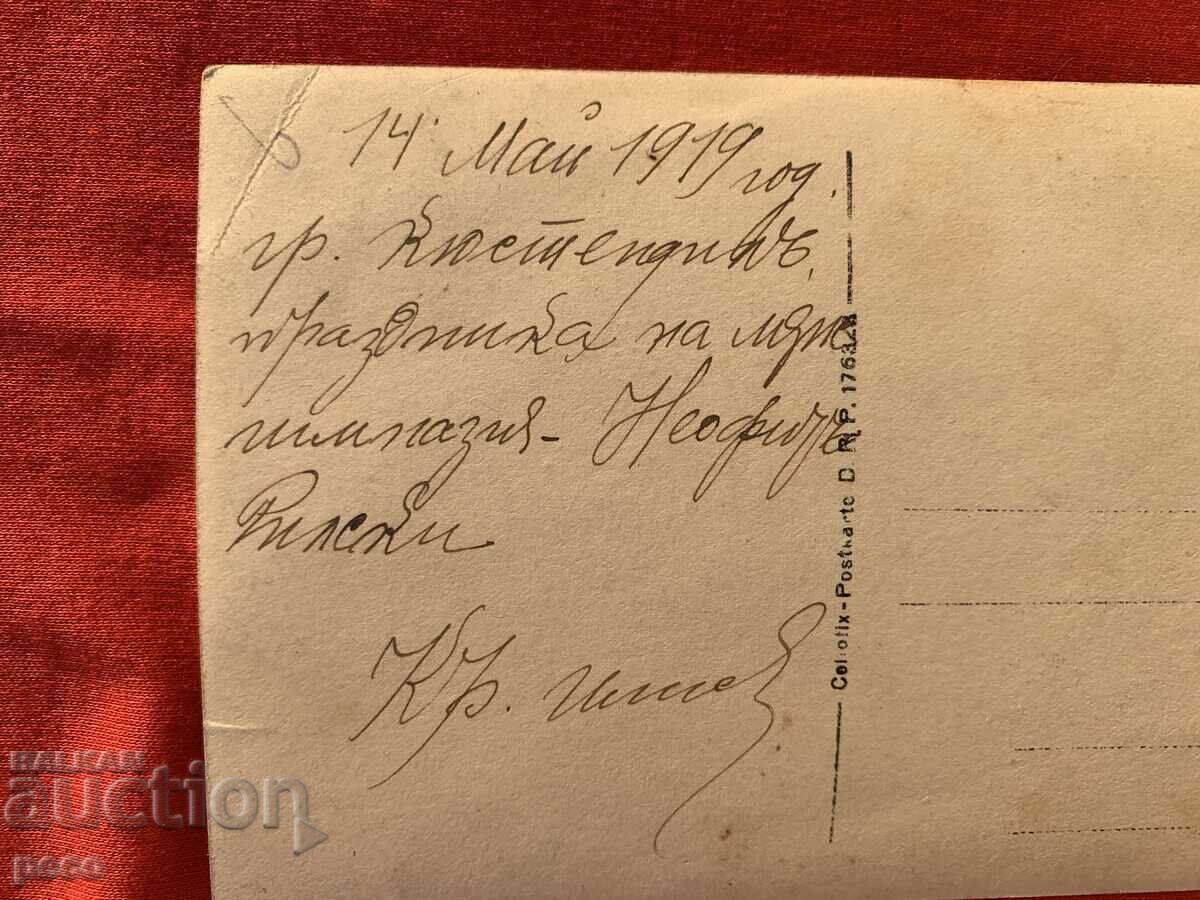 14 Май 1919 год.
гр. Кюстендилъ,
празника на мѫж
гимназия - Неофитъ
Рилски
Кр.
Cellofix-Postkarte D. R. P. 176323
BALKAN
auction
peco